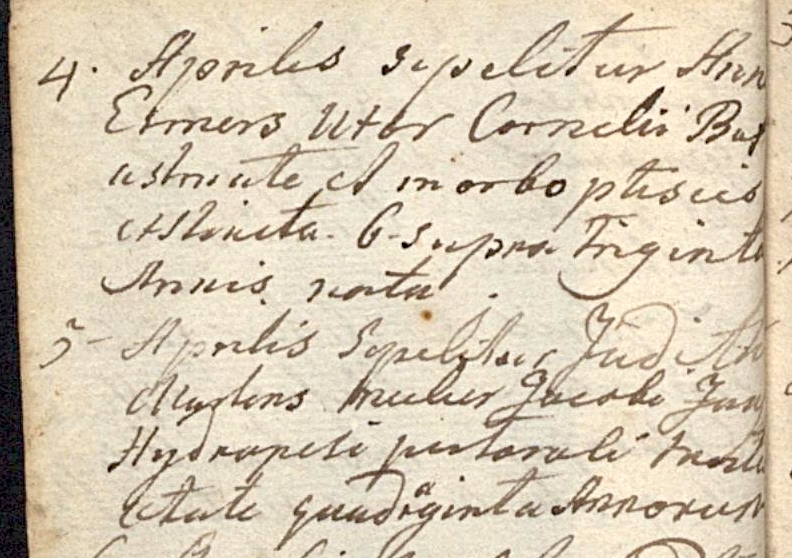 4. Aprilis sepelitur Ann
Esmers Uxor Cornelii Bax
asmate et morbo ptisies
extincta. 6-supra Triginta
Annis nata.
5- Aprilis Sepelitur Judith
Martens mulier Jacobi Jan
Hydropesi pectorali
etate quadraginta Annorum